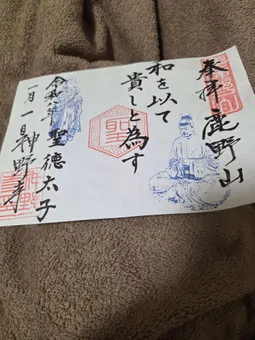 奉拝 鹿野山
和を以て
貴しと為す
聖
聖徳太子
令和八年
一月一日 神野寺